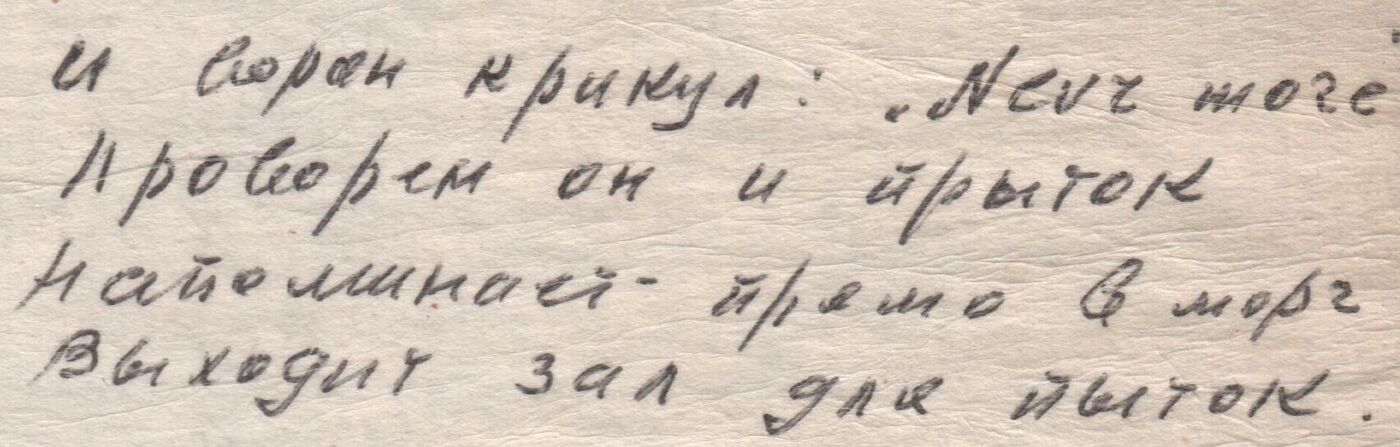 и ворон крикул: „Nevr more"
Проворен он и прыток
Напоминает- прямо в морг
Выходит зал для пыток.